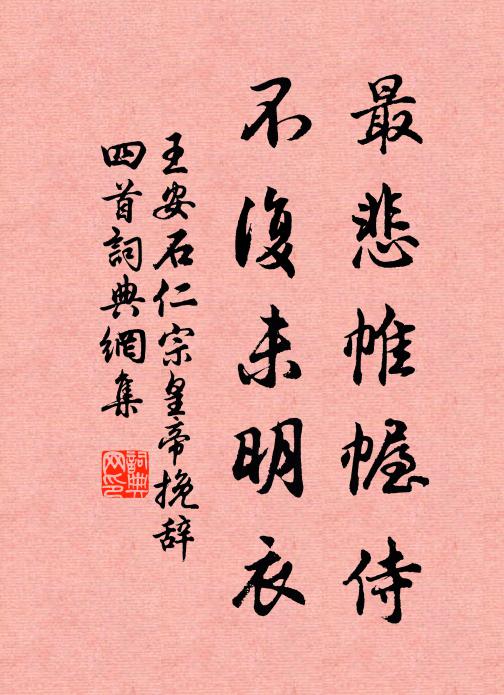 最悲帷幄侍
不復未明衣
王安石仁宗皇帝挽辞
四首詞典網集
詞典网印